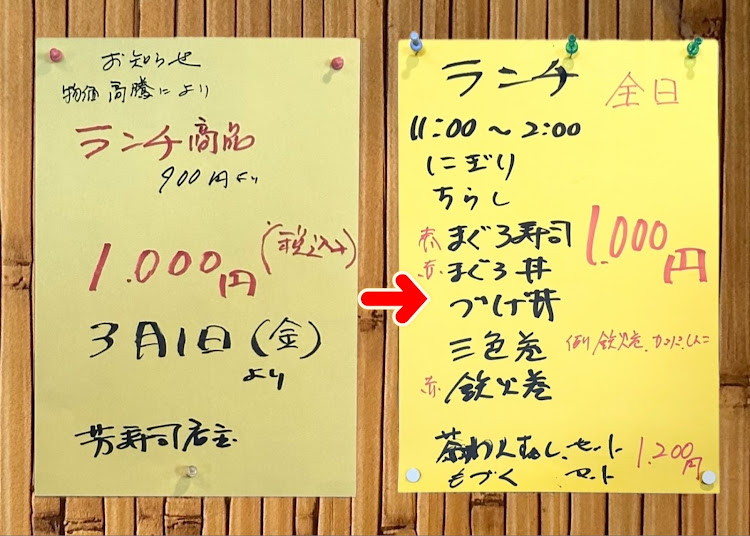 お知らせ
物価高騰により
ランチ商品
900円より
1.000円(税込)
3月1日(金)
より
芳寿司店主
ランチ 全日
11:00〜2:00
にぎり
ちらし
赤 まぐろ寿司 1.000円
赤 まぐろ丼
づけ丼
三色巻 例 鉄火巻.かっぱ.しんこ
赤 鉄火巻
茶わんむし.セット 1.200円
もづく セット